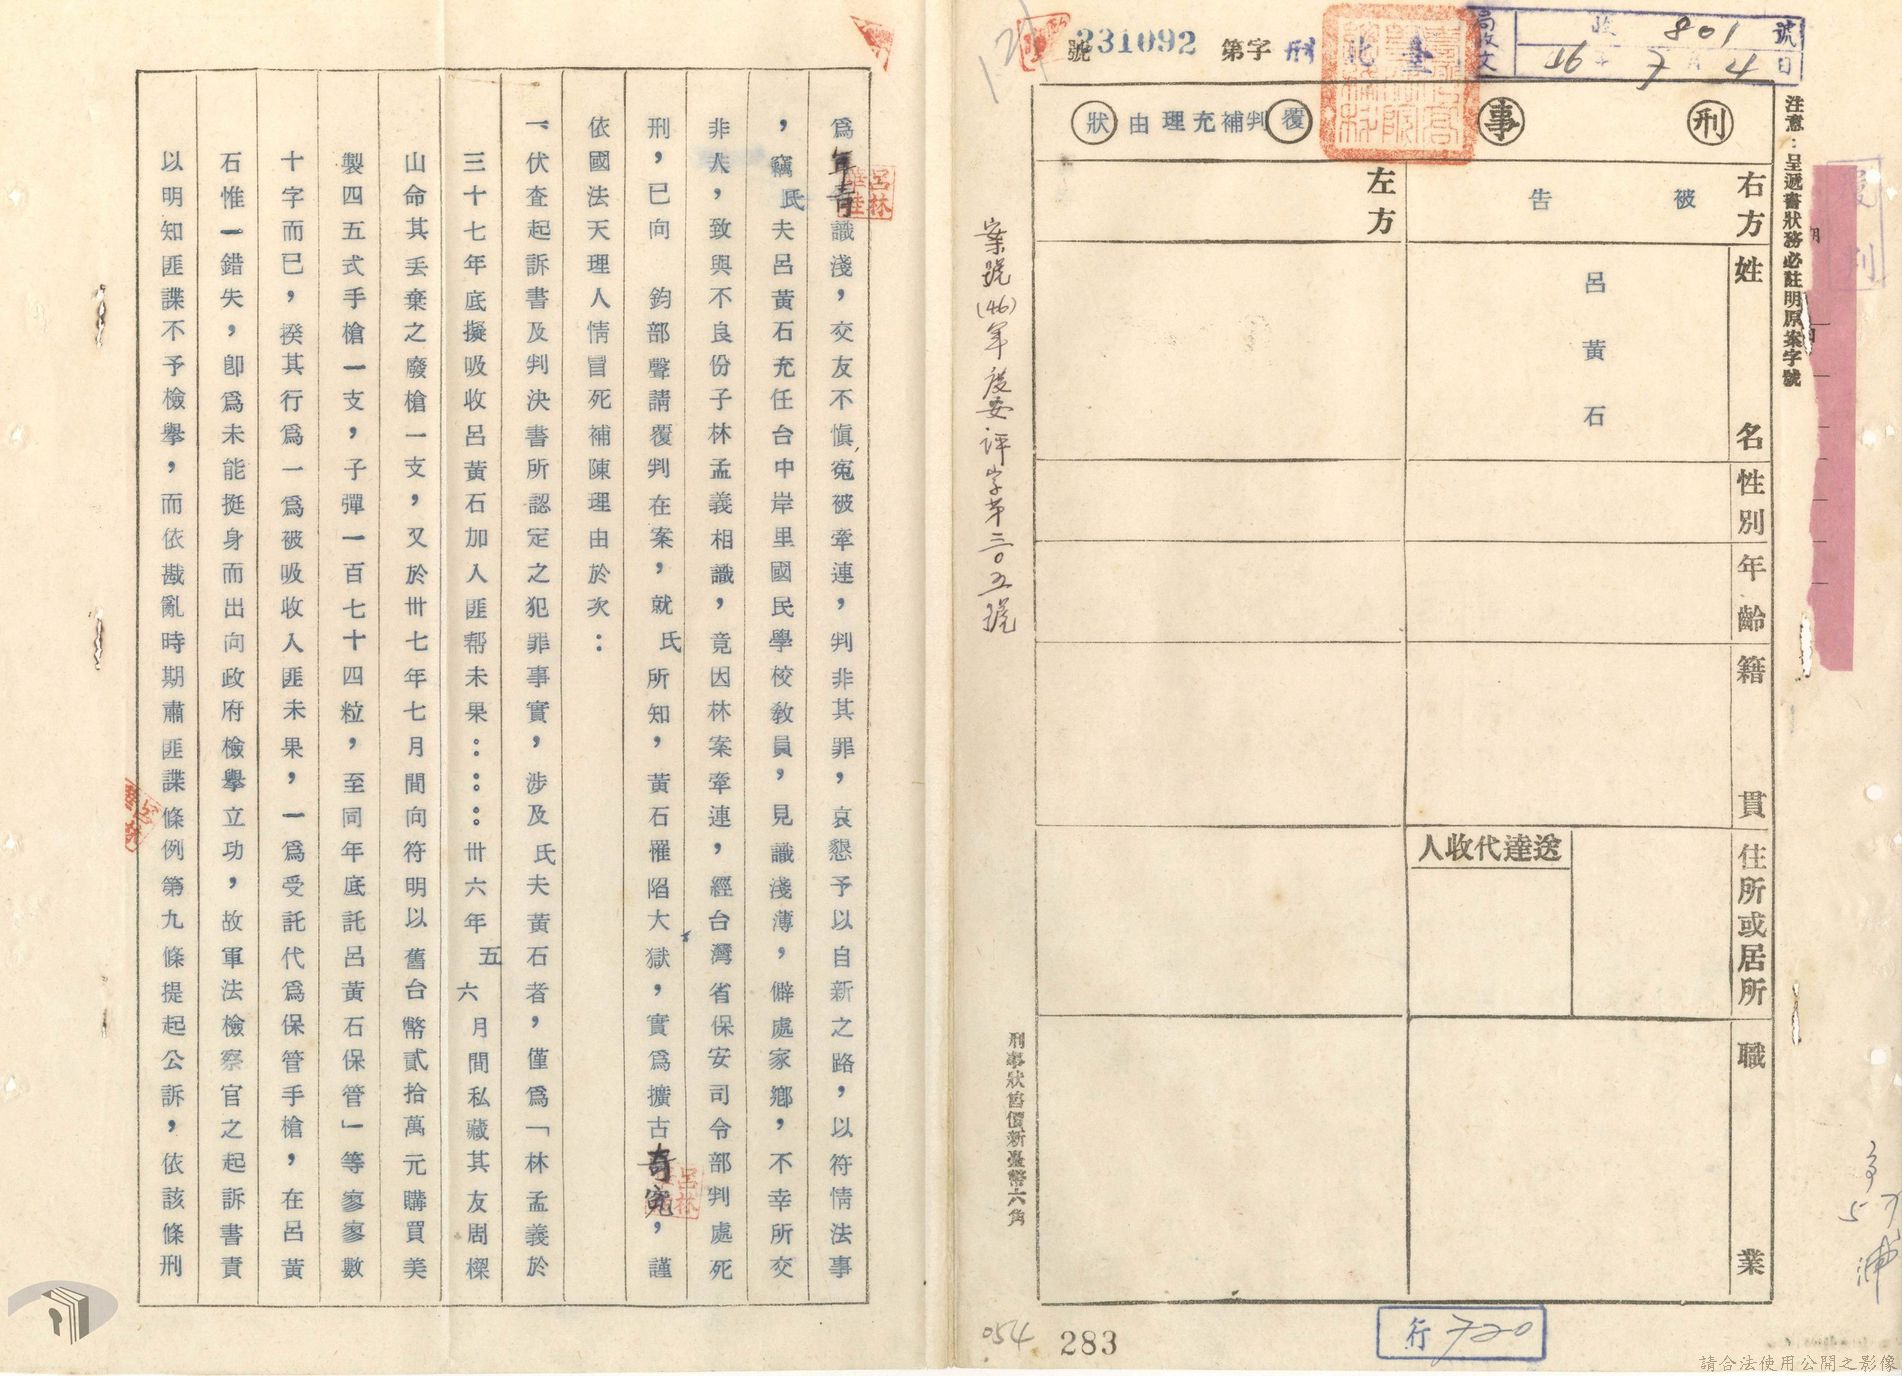 收 801 號
46年7月4日
臺北 刑字第 231092 號
刑事 覆判補充理由狀
注意：呈遞書狀務必註明原案字號
覆判
右方
被告
左方
姓名
呂黃石
性別
年齡
籍貫
住所或居所
送達代收人
職業
案號(46)年度安評字第三〇五號
刑事狀售價新臺幣六角
行 720
283
054
為年青識淺，交友不慎冤被牽連，判非其罪，哀懇予以自新之路，以符情法事
，竊氏夫呂黃石充任台中岸里國民學校教員，見識淺薄，僻處家鄉，不幸所交
非人，致與不良份子林孟義相識，竟因林案牽連，經台灣省保安司令部判處死
刑，已向　鈞部聲請覆判在案，就氏所知，黃石罹陷大獄，實為擴古奇冤，謹
依國法天理人情冒死補陳理由於次：
一、伏查起訴書及判決書所認定之犯罪事實，涉及氏夫黃石者，僅為「林孟義於
三十七年底擬吸收呂黃石加入匪幫未果……卅六年五六月間私藏其友周樑
山命其丟棄之廢槍一支，又於卅七年七月間向符明以舊台幣貳拾萬元購買美
製四五式手槍一支，子彈一百七十四粒，至同年底託呂黃石保管」等寥寥數
十字而已，揆其行為一為被吸收入匪未果，一為受託代為保管手槍，在呂黃
石惟一錯失，即為未能挺身而出向政府檢舉立功，故軍法檢察官之起訴書責
以明知匪諜不予檢舉，而依戡亂時期肅匪諜條例第九條提起公訴，依該條刑
請合法使用公開之影像